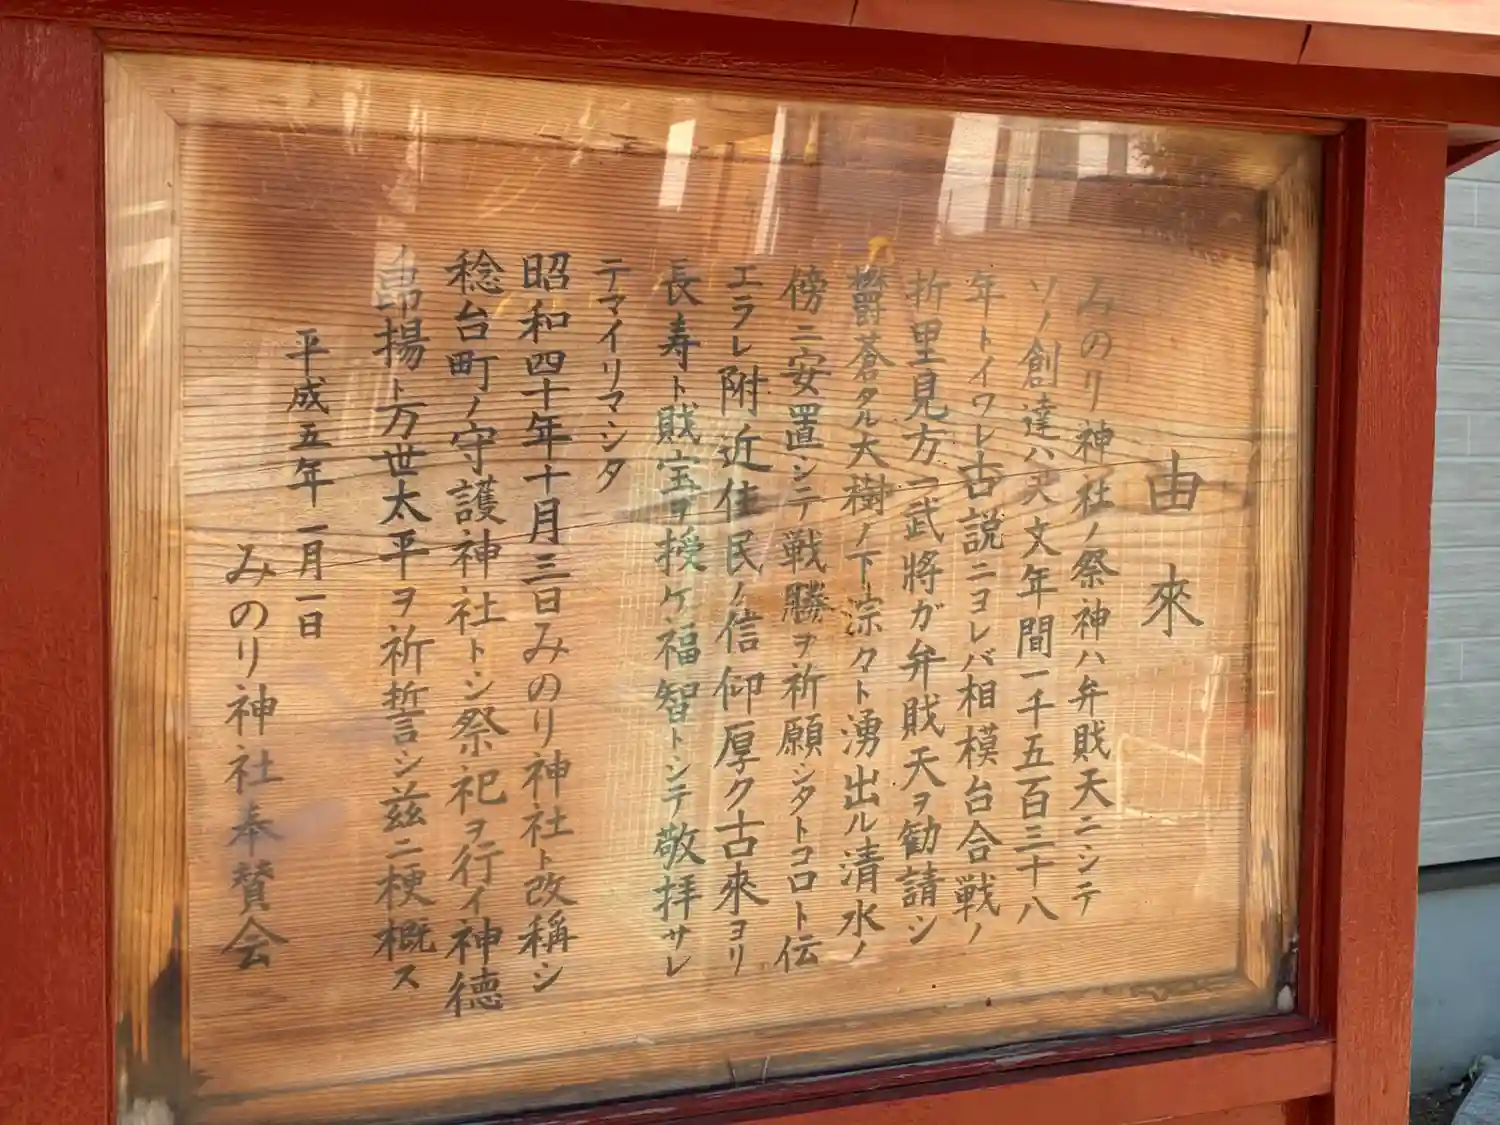 由來
みのり神社ノ祭神ハ弁賎天ニシテ
ソノ創達ハ天文年間一千五百三十八
年トイワレ古説ニヨレバ相模台合戦ノ
折里見方一武將ガ弁賎天ヲ勧請シ
欝蒼タル大樹ノ下淙々ト湧出ル清水ノ
傍ニ安置シテ戦勝ヲ祈願シタトコロト伝
エラレ附近住民ノ信仰厚ク古來ヨリ
長寿ト賎宝ヲ授ケ福智トシテ敬拝サレ
テマイリマシタ
昭和四十年十月三日みのり神社ト改稱シ
稔台町ノ守護神社トシ祭祀ヲ行イ神徳
昂揚ト万世太平ヲ祈誓シ茲ニ梗概ス
平成五年一月一日
みのり神社奉賛会